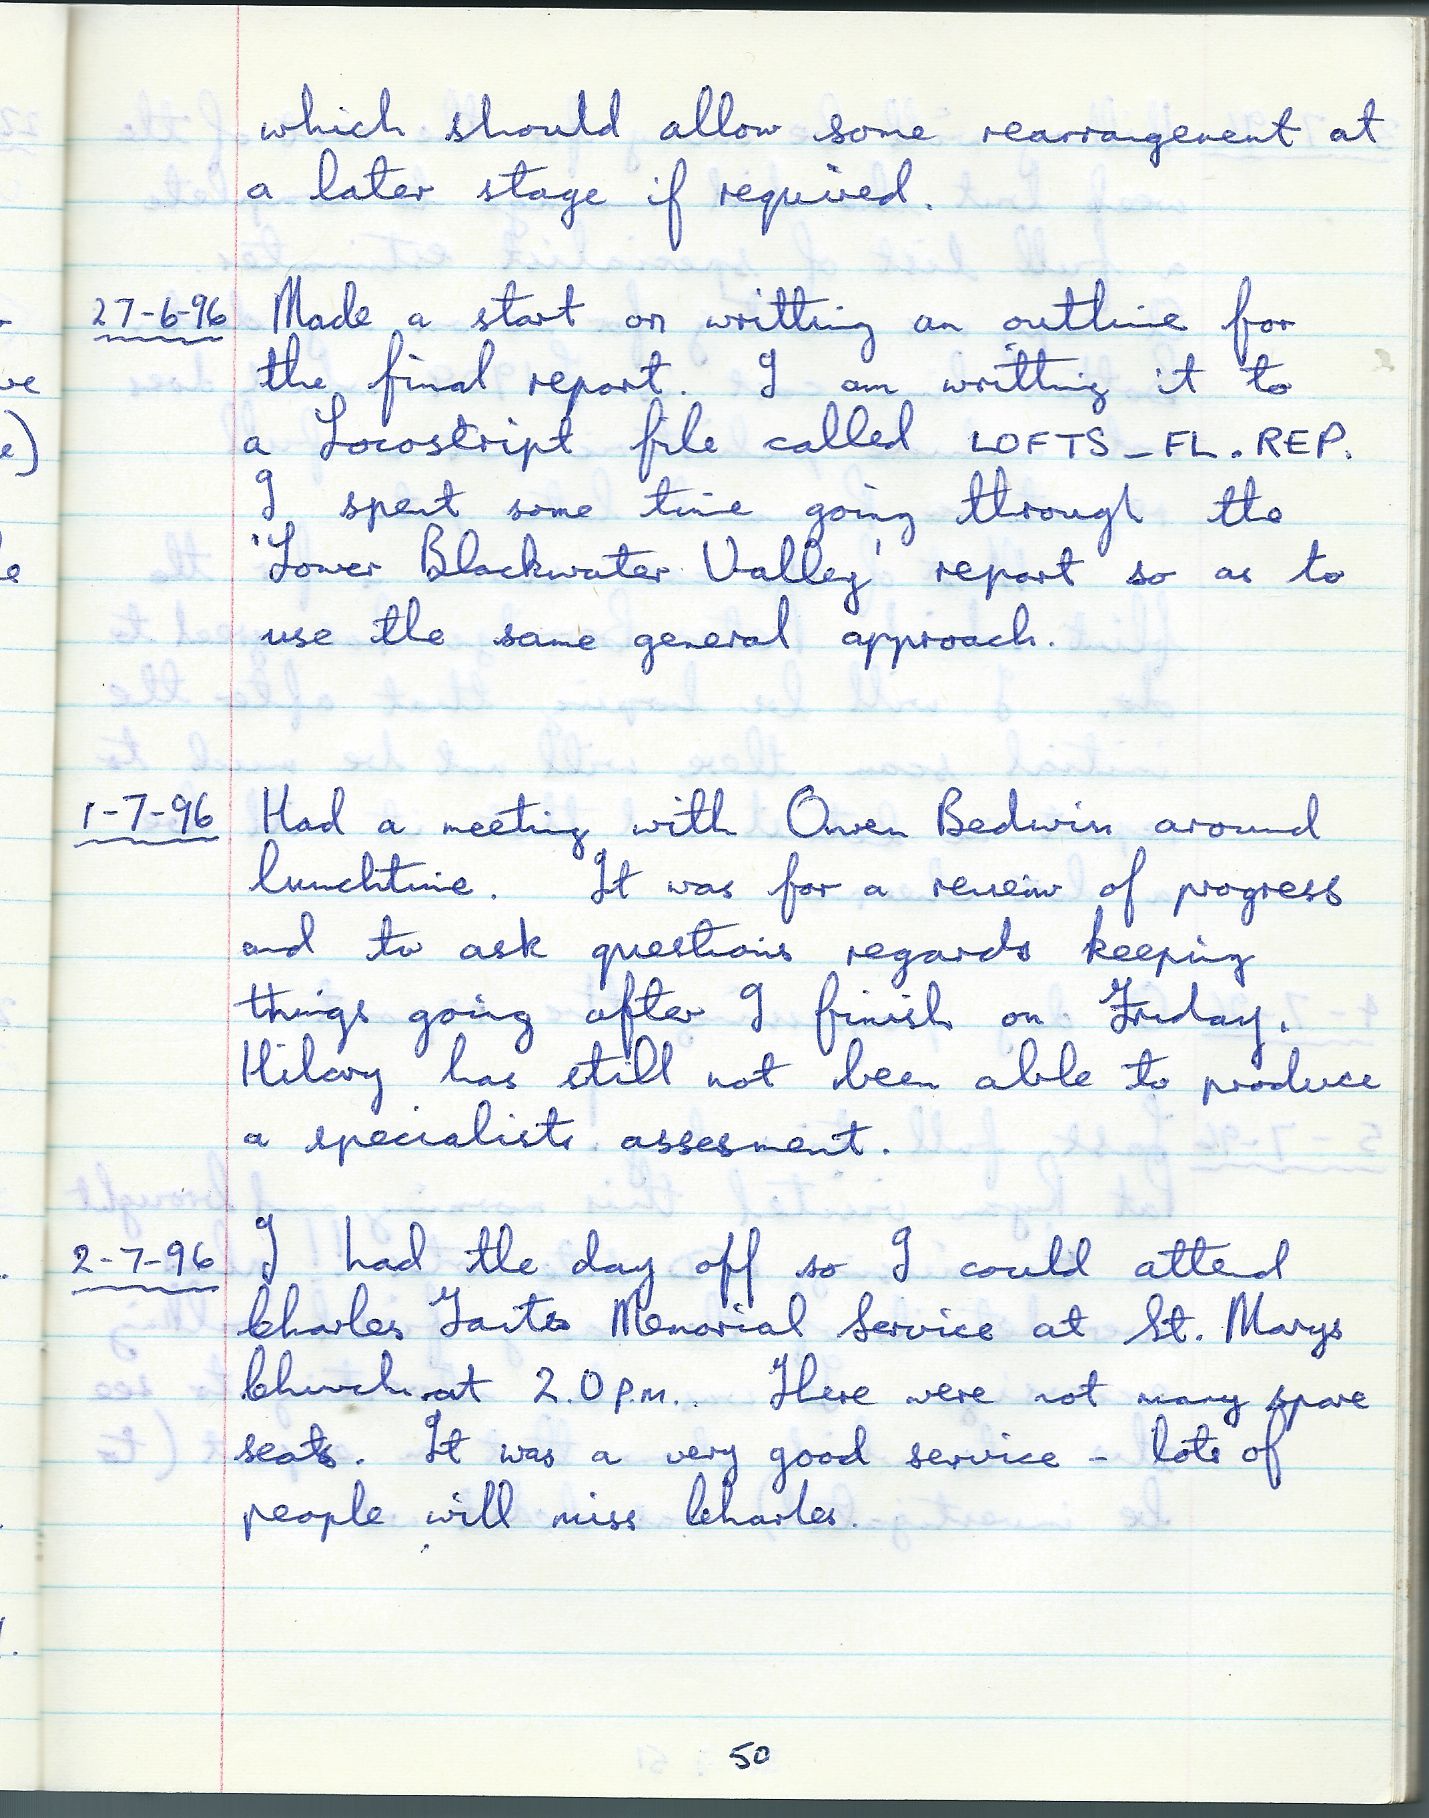 which should allow some rearrangement at
a later stage if required.
27-6-96 Made a start on writting an outline for
the final report. I am writting it to
a Locostript file called LOFTS_FL.REP.
I spent some time going through the
'Lower Blackwater Valley' report so as to
use the same general approach.
1-7-96 Had a meeting with Owen Bedwin around
lunchtime. It was for a review of progress
and to ask questions regards keeping
things going after I finish on Friday.
Hilary has still not been able to produce
a specialists assesment.
2-7-96 I had the day off so I could attend
Charles Memorial Service at St. Marys
Church at 2.0 p.m.. There were not many spare
seats. It was a very good service - lots of
people will miss Charles.
50